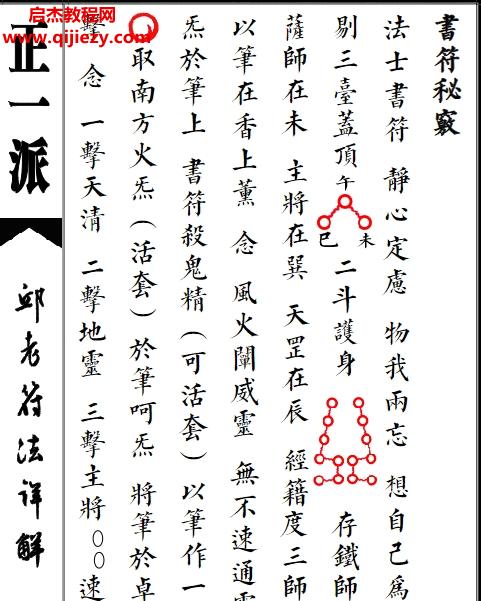 書符秘竅
法士書符 靜心定慮 物我兩忘 想自己爲
剔三臺蓋頂 午 巳 未 二斗護身 存鐵師
薩師在未 主將在巽 天罡在辰 經籍度三師
以筆在香上薰 念 風火闡威靈 無不速通靈
炁於筆上 書符殺鬼精(可活套)以筆作一
取南方火炁(活套)於筆呵炁 將筆於卓
擊 念 一擊天清 二擊地靈 三擊主將○○速
正一派
邱老符法详解
启杰教程网
www.qijiezy.com